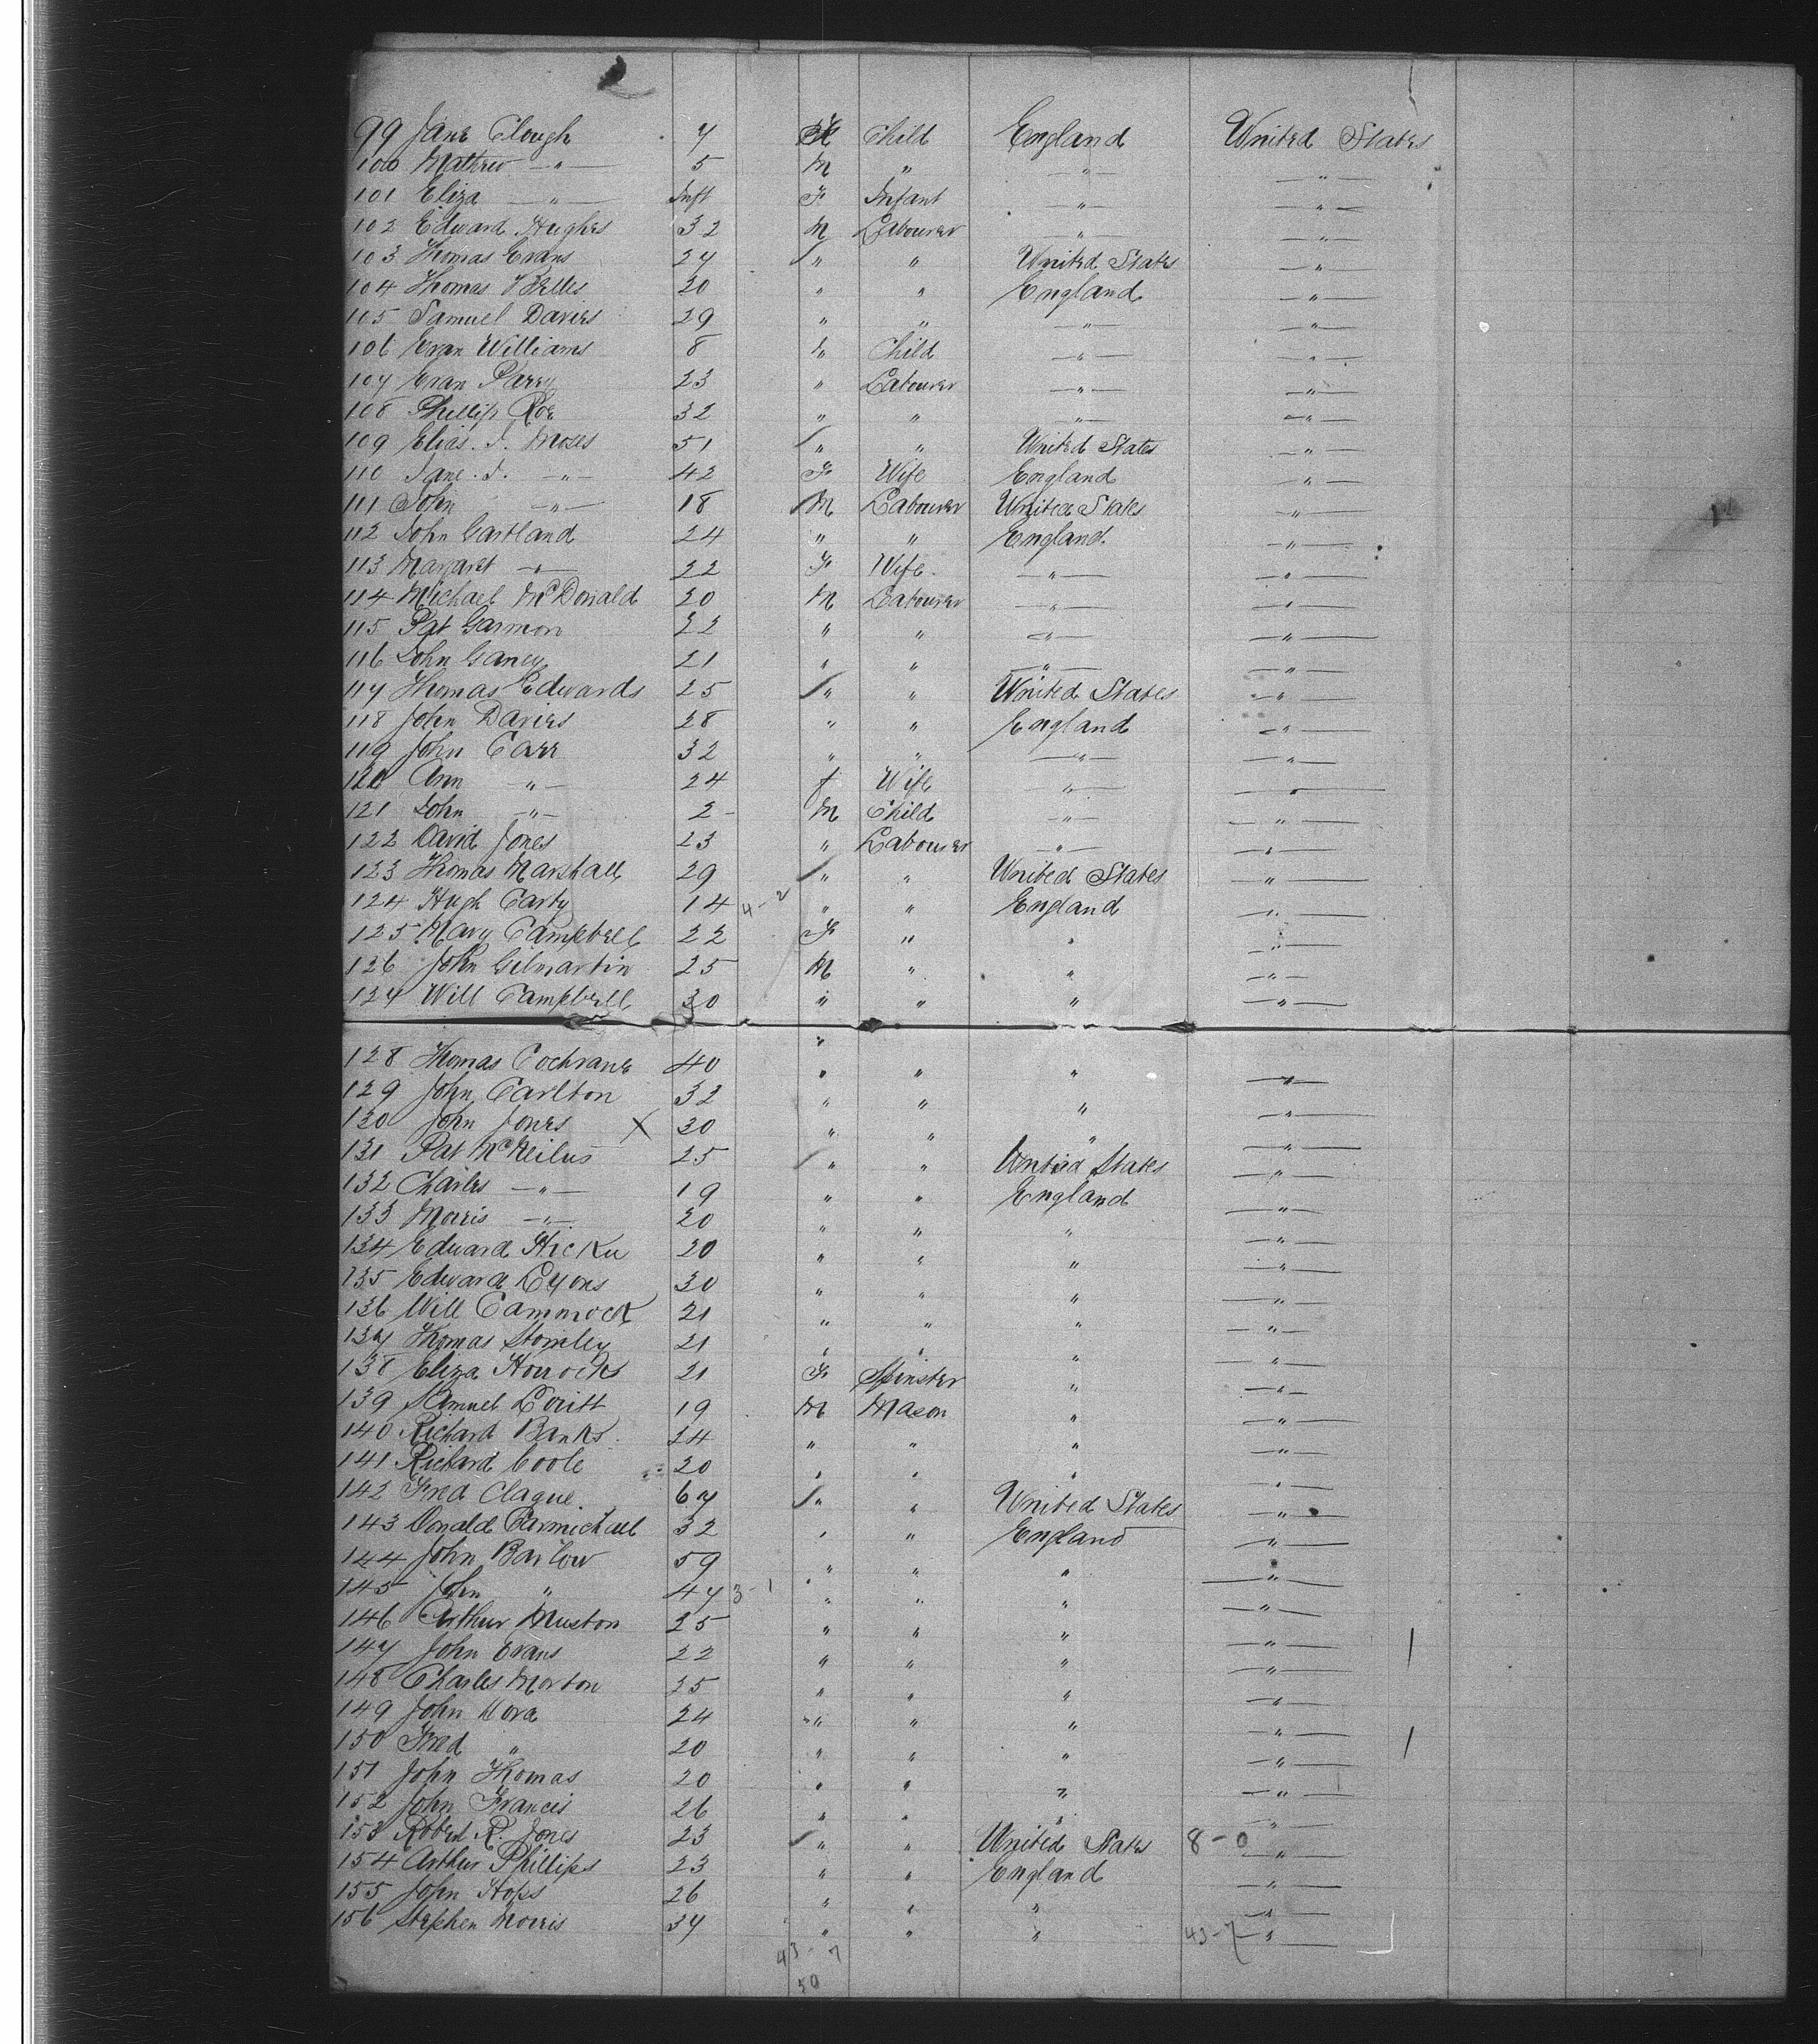 99 Jane Clough 7 F Child England United States
100 Mathew —"— 5 M " —"— —"—
101 Eliza —"— Inft F Infant —"— —"—
102 Edward Hughes 32 M Labourer —"— —"—
103 Thomas Evans 27 " " United States —"—
104 Thomas 20 " " England —"—
105 Samuel Davies 29 " " —"— —"—
106 Evan Williams 8 " Child —"— —"—
107 Evan Parry 23 " Labourer —"— —"—
108 Phillip Roe 32 " " —"— —"—
109 Elias. J. Moses 51 " " United States —"—
110 Jane. J. —"— 42 F Wife England —"—
111 John —"— 18 M Labourer United States —"—
112 John Gartland 24 " " England. —"—
113 Margaret —"— 22 F Wife. —"— —"—
114 Michael McDonald 20 M Labourer —"— —"—
115 Pat Garmon 22 " " —"— —"—
116 John Ganey 21 " " —"— —"—
117 Thomas Edwards 25 " " United States —"—
118 John Davies 28 " " England —"—
119 John Carr 32 " " —"— —"—
120 Ann —"— 24 f Wife —"— —"—
121 John —"— 2 - M Child —"— —"—
122 David Jones 23 " Labourer —"— —"—
123 Thomas Marshall 29 " " United States —"—
124 Hugh Carty 14 4-2 " " England —"—
125 Mary Campbell 22 F " " —"—
126 John Gilmartin 25 M " " —"—
127 Will Campbell 30 " " " —"—
128 Thomas Cochrane 40 " " " —"—
129 John Carlton 32 " " " —"—
130 John Jones X 30 " " " —"—
131 Pat McNeilus 25 " " United States —"—
132 Charles —"— 19 " " England —"—
133 Morris —"— 20 " " " —"—
134 Edward 20 " " " —"—
135 Edward Lyons 30 " " " —"—
136 Will Cammock 21 " " " —"—
137 Thomas 21 " " " —"—
138 Eliza Horrocks 21 F Spinster " —"—
139 Samuel 19 M Mason " —"—
140 Richard Banks 24 " " " —"—
141 Richard Coole 20 " " " —"—
142 Fred Clague. 67 " " United States —"—
143 Donald Carmichael 32 " " England —"—
144 John Barlow 59 " " " —"—
145 John " 47 3-1 " " " —"—
146 Arthur Muston 25 " " " —"—
147 John Evans 22 " " " —"—
148 Charles Morton 25 " " " —"—
149 John 24 " " " —"—
150 Fred " 20 " " " —"—
151 John Thomas 20 " " " —"—
152 John Francis 26 " " " —"—
153 Robert R. Jones 23 " " United States 8-0 —"—
154 Arthur Phillips 23 " " England —"—
155 John Hops 26 " " " —"—
156 Stephen Morris 37 " " " 43-7 —"—
43-7
50